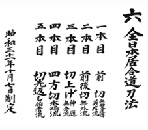 六 全日本居合道刀法
一本目 前切
二本目 前後切
三本目 切上げ
四本目 四方切
五本目 切先返し
昭和三十一年十月七日制定